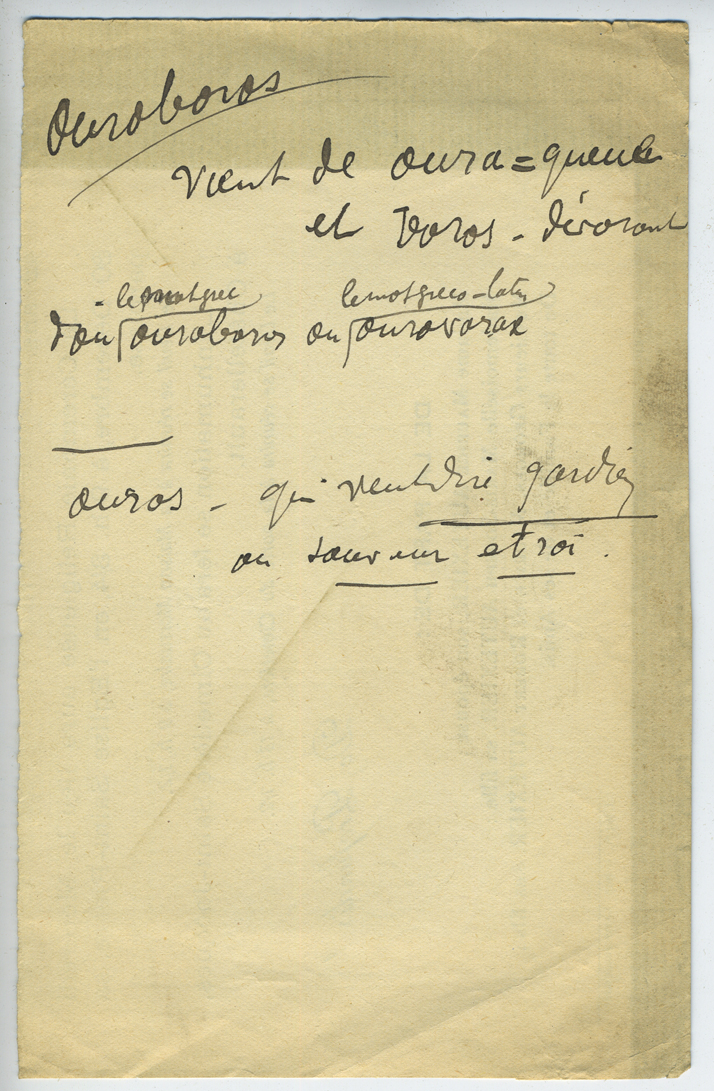 Ouroboros
vient de oura = queue
et voros - dévorant
- le mot grec le mot greco-latin
d'ou ouroboros ou ourovorax
ouros - qui veut dire gardien
ou sauveur et roi.